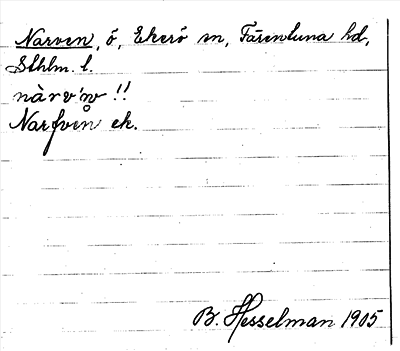 Narven, ö, Ekerö sn, Färentuna hd,
Sthlm. l.
nàrv'n !!
Narfven ek.
B. Hesselman 1905